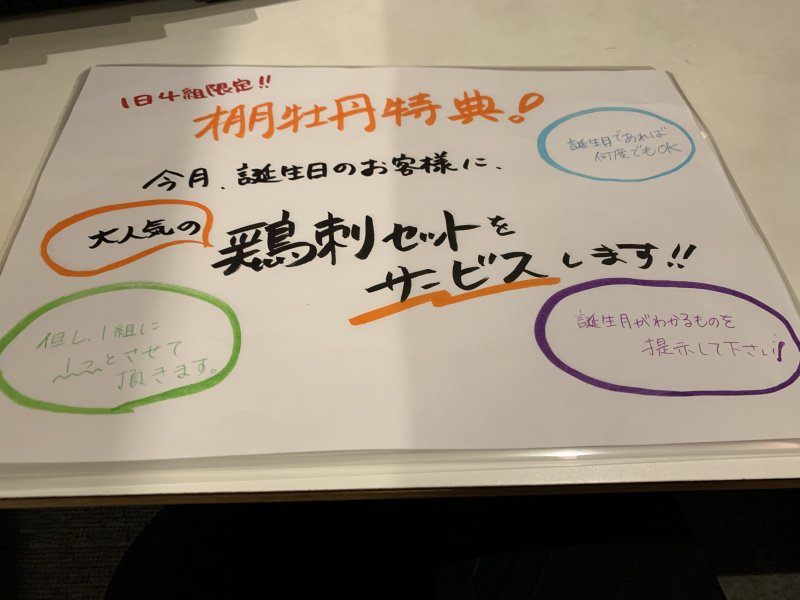 1日4組限定!!
棚牡丹特典!
誕生月であれば
何度でもOK
今月、誕生日のお客様に、
大人気の
鶏刺セットを
サービスします!!
但し、1組に
1つとさせて
頂きます。
誕生月がわかるものを
提示して下さい!